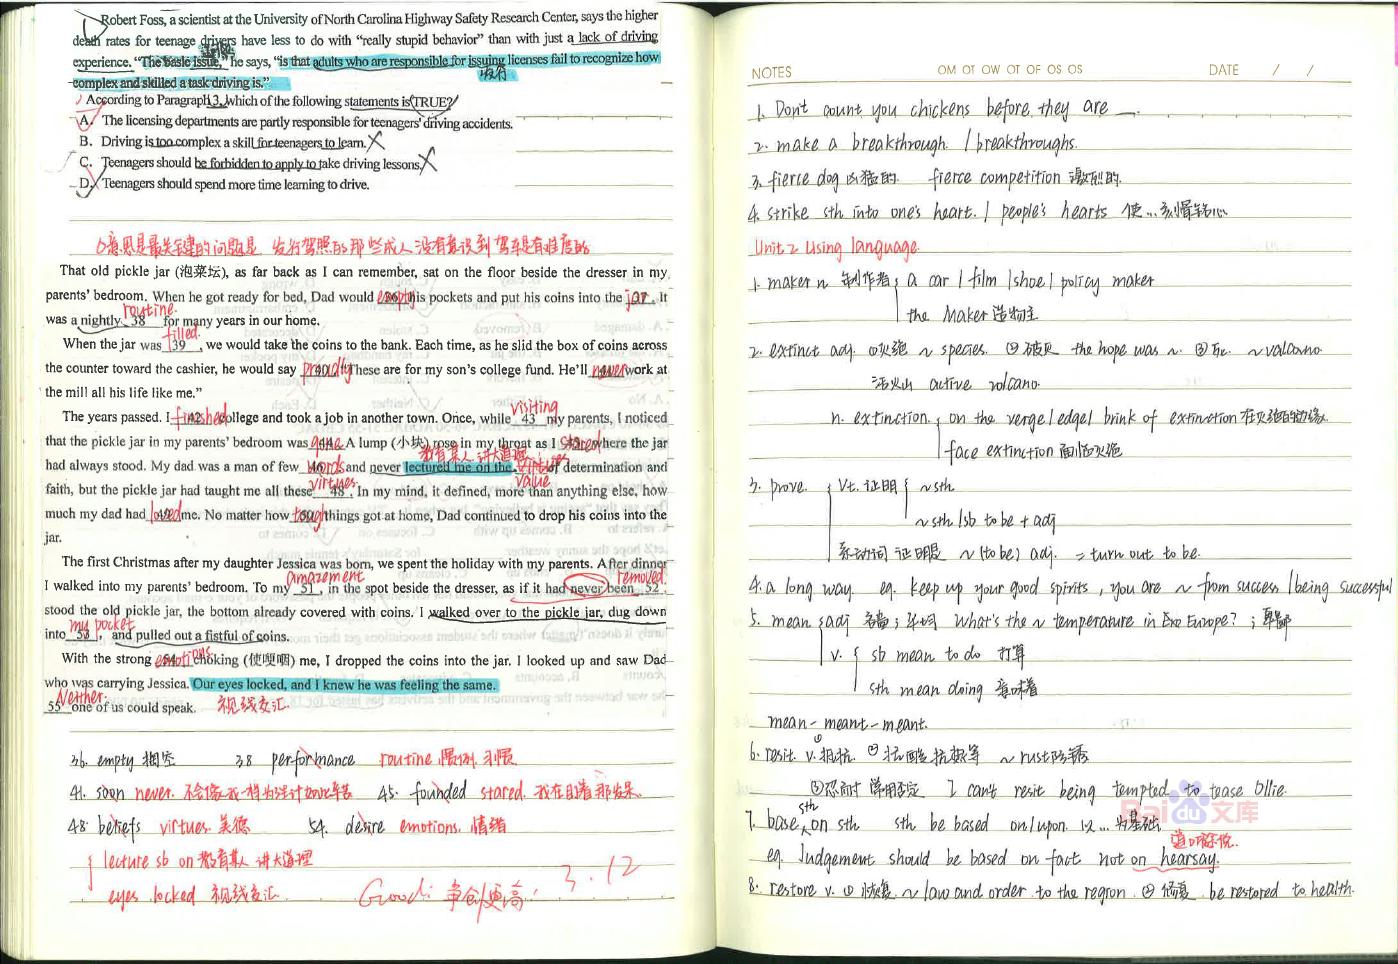 Robert Foss, a scientist at the University of North Carolina Highway Safety Research Center, says the higher
death rates for teenage drivers have less to do with “really stupid behavior” than with just a lack of driving
experience. “The basic issue,” he says, “is that adults who are responsible for issuing licenses fail to recognize how
发行
complex and skilled a task driving is.”
According to Paragraph 3, which of the following statements is TRUE?
A. The licensing departments are partly responsible for teenagers' driving accidents.
B. Driving is too complex a skill for teenagers to learn.
C. Teenagers should be forbidden to apply to take driving lessons.
D. Teenagers should spend more time learning to drive.
意思是最关键的问题是 发行驾照的那些成人没有意识到驾车是有难度的
That old pickle jar (泡菜坛), as far back as I can remember, sat on the floor beside the dresser in my
parents' bedroom. When he got ready for bed, Dad would 36 empty his pockets and put his coins into the 37 jar. It
routine
was a nightly 38 for many years in our home.
filled
When the jar was 39, we would take the coins to the bank. Each time, as he slid the box of coins across
the counter toward the cashier, he would say proudly “These are for my son's college fund. He'll never work at
the mill all his life like me.”
visiting
The years passed. I 42 finished college and took a job in another town. Once, while 43 my parents, I noticed
that the pickle jar in my parents' bedroom was 44 gone. A lump (小块) rose in my throat as I stared where the jar
教育某人 讲大道理
had always stood. My dad was a man of few 46 words and never lectured me on the virtues of determination and
virtues value
faith, but the pickle jar had taught me all these 48. In my mind, it defined, more than anything else, how
much my dad had loved me. No matter how tough things got at home, Dad continued to drop his coins into the
jar.
The first Christmas after my daughter Jessica was born, we spent the holiday with my parents. After dinner
amazement removed
I walked into my parents' bedroom. To my 51, in the spot beside the dresser, as if it had never been 52,
stood the old pickle jar, the bottom already covered with coins. I walked over to the pickle jar, dug down
my pocket
into 53, and pulled out a fistful of coins.
With the strong 54 emotions choking (使哽咽) me, I dropped the coins into the jar. I looked up and saw Dad
who was carrying Jessica. Our eyes locked, and I knew he was feeling the same.
Neither
55 one of us could speak. 视线交汇
36. empty 掏空 38 performance routine 惯例 习惯
41. soon never. 45. founded stared.
48. beliefs virtues 美德 54. desire emotions. 情绪
lecture sb on 教育某人 讲大道理
eyes locked 视线交汇 Good! 争创更高! 3.12
NOTES OM OT OW OT OF OS OS DATE / /
1. Don't count you chickens before they are —.
2. make a breakthrough / breakthroughs.
3. fierce dog 凶猛的 fierce competition 激烈的.
4. strike sth into one's heart. / people's hearts 使...刻骨铭心
Unit 2 Using language.
1. maker n 制作者; a car / film / shoe / policy maker
the Maker 造物主
2. extinct adj. ①灭绝 ~ species. ②破灭 the hope was ~. ③死 ~ valcano.
活火山 active volcano.
n. extinction. on the verge / edge / brink of extinction 在灭绝的边缘
face extinction 面临灭绝
3. prove. Vt. 证明 ~ sth
~ sth / sb to be + adj
系动词 证明是 ~ (to be) adj. = turn out to be.
4. a long way. eg. keep up your good spirits, you are ~ from success / being successful
5. mean adj 吝啬; 平均 What's the ~ temperature in Europe? ; 卑鄙
v. sb mean to do 打算
sth mean doing 意味着
mean - meant - meant.
6. resit. v. ①抵抗. ②抗酸 抗热等 ~ rust 防锈
③忍耐 常用否定 I can't resit being tempted to tease Ollie.
7. base sth on sth sth be based on/upon. 以...为基础
道听途说.
eg. Judgement should be based on fact not on hearsay.
8. restore v. ① 恢复 ~ law and order to the region. ② 修复. be restored to health.
Baidu文库